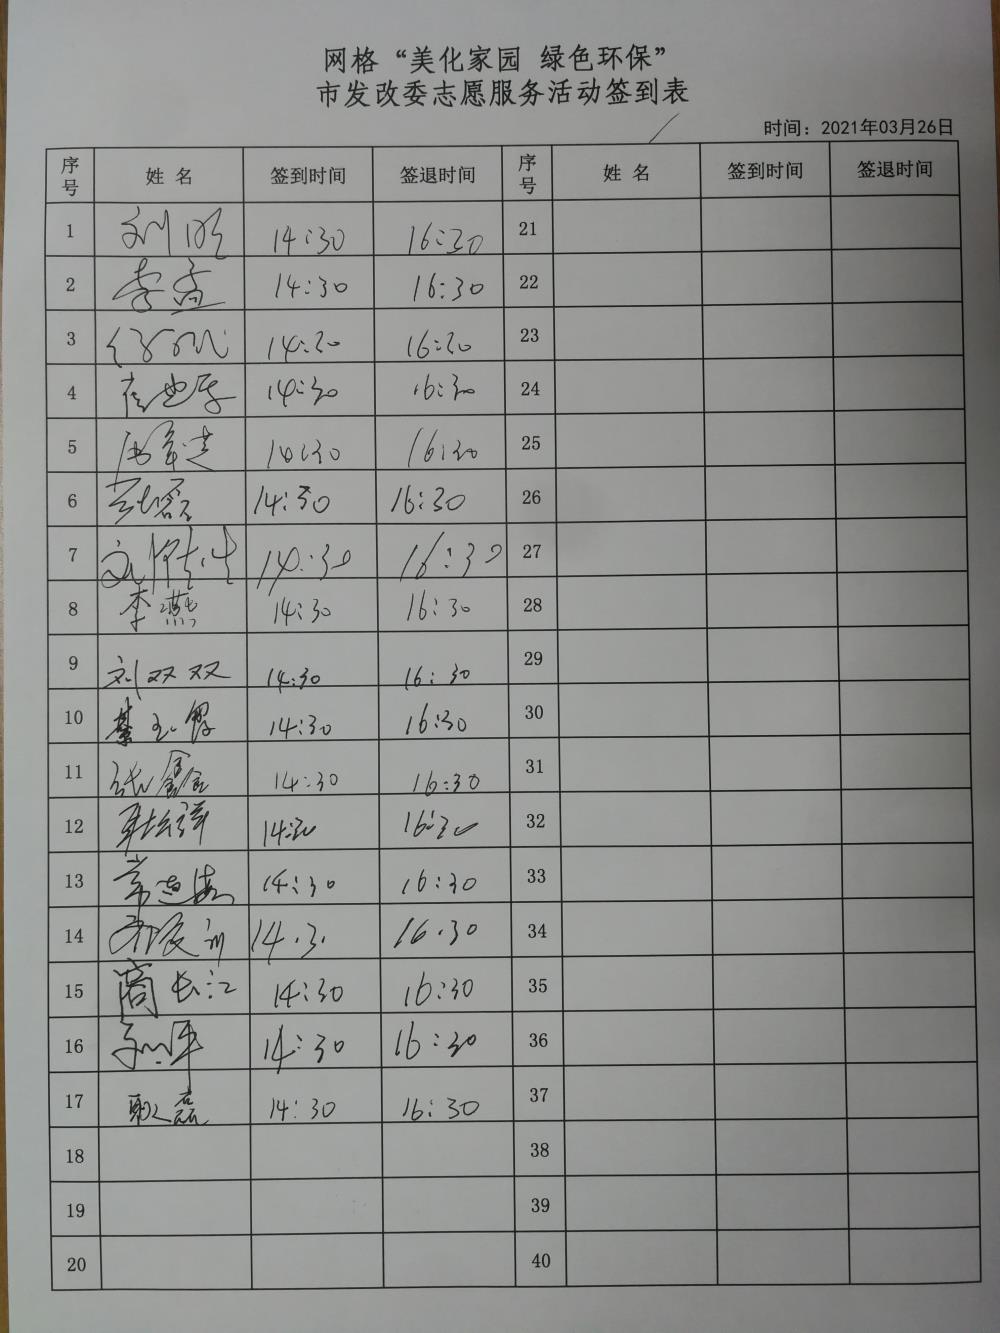 网格“美化家园 绿色环保”
市发改委志愿服务活动签到表
时间：2021年03月26日
序号 姓名 签到时间 签退时间 序号 姓名 签到时间 签退时间
1 14:30 16:30 21
2 李孟 14:30 16:30 22
3 14:30 16:30 23
4 14:30 16:30 24
5 14:30 16:30 25
6 14:30 16:30 26
7 14:30 16:30 27
8 李燕 14:30 16:30 28
9 刘双双 14:30 16:30 29
10 14:30 16:30 30
11 张鑫 14:30 16:30 31
12 14:30 16:30 32
13 14:30 16:30 33
14 14.3. 16.30 34
15 商长江 14:30 16:30 35
16 14:30 16:30 36
17 14:30 16:30 37
18 38
19 39
20 40